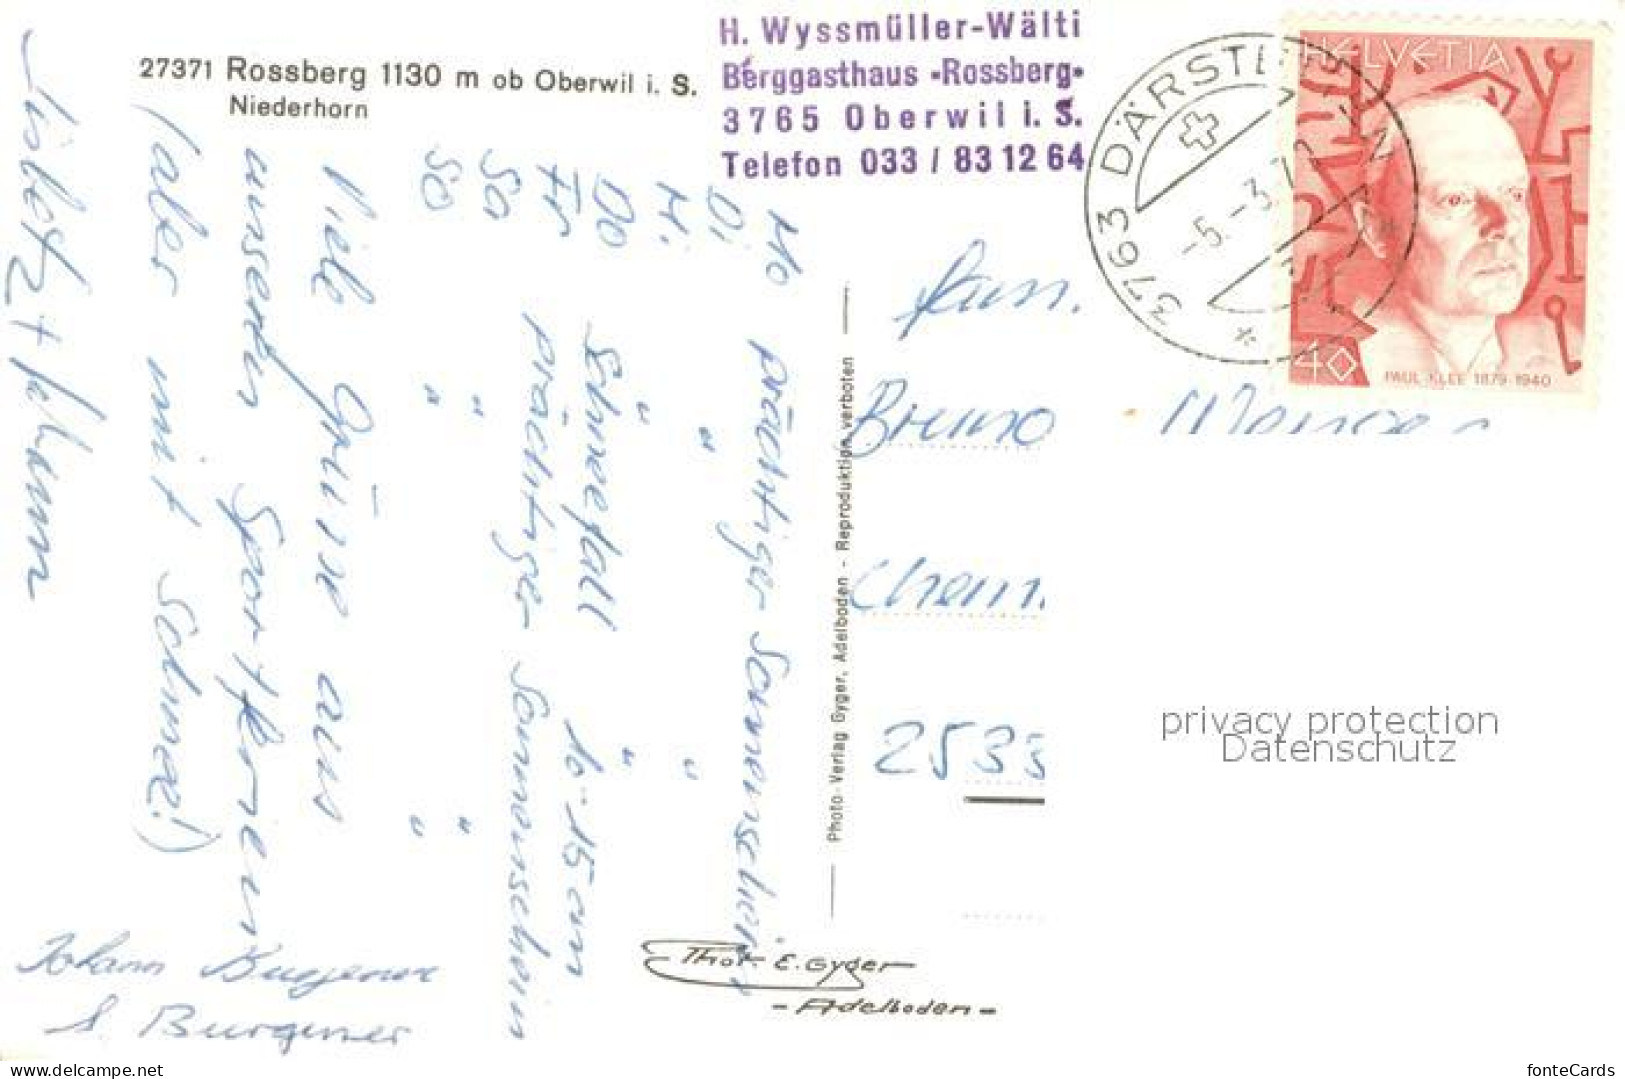 27371 Rossberg 1130 m ob Oberwil i. S.
Niederhorn
H. Wyssmüller-Wälti
Berggasthaus «Rossberg»
3765 Oberwil i. S.
Telefon 033 / 83 12 64
3763 DÄRSTETTEN
-5.-3.79
HELVETIA
40
PAUL KLEE 1879-1940
Mo prächtiger Sonnenschein
Di " "
Mi. " "
Do Schneefall 10-15 cm
Fr prächtiger Sonnenschein
Sa " "
So " "
Viele Grüsse aus
unseren Sportferien
(aber mit Schnee!)
+ Johann
Johann Burgener
S. Burgener
Photo-Verlag Gyger, Adelboden - Reproduktion verboten
Thor E. Gyger
- Adelboden -
Fam.
Bruno
Chem.
2533
privacy protection
Datenschutz
www.delcampe.net
fonteCards